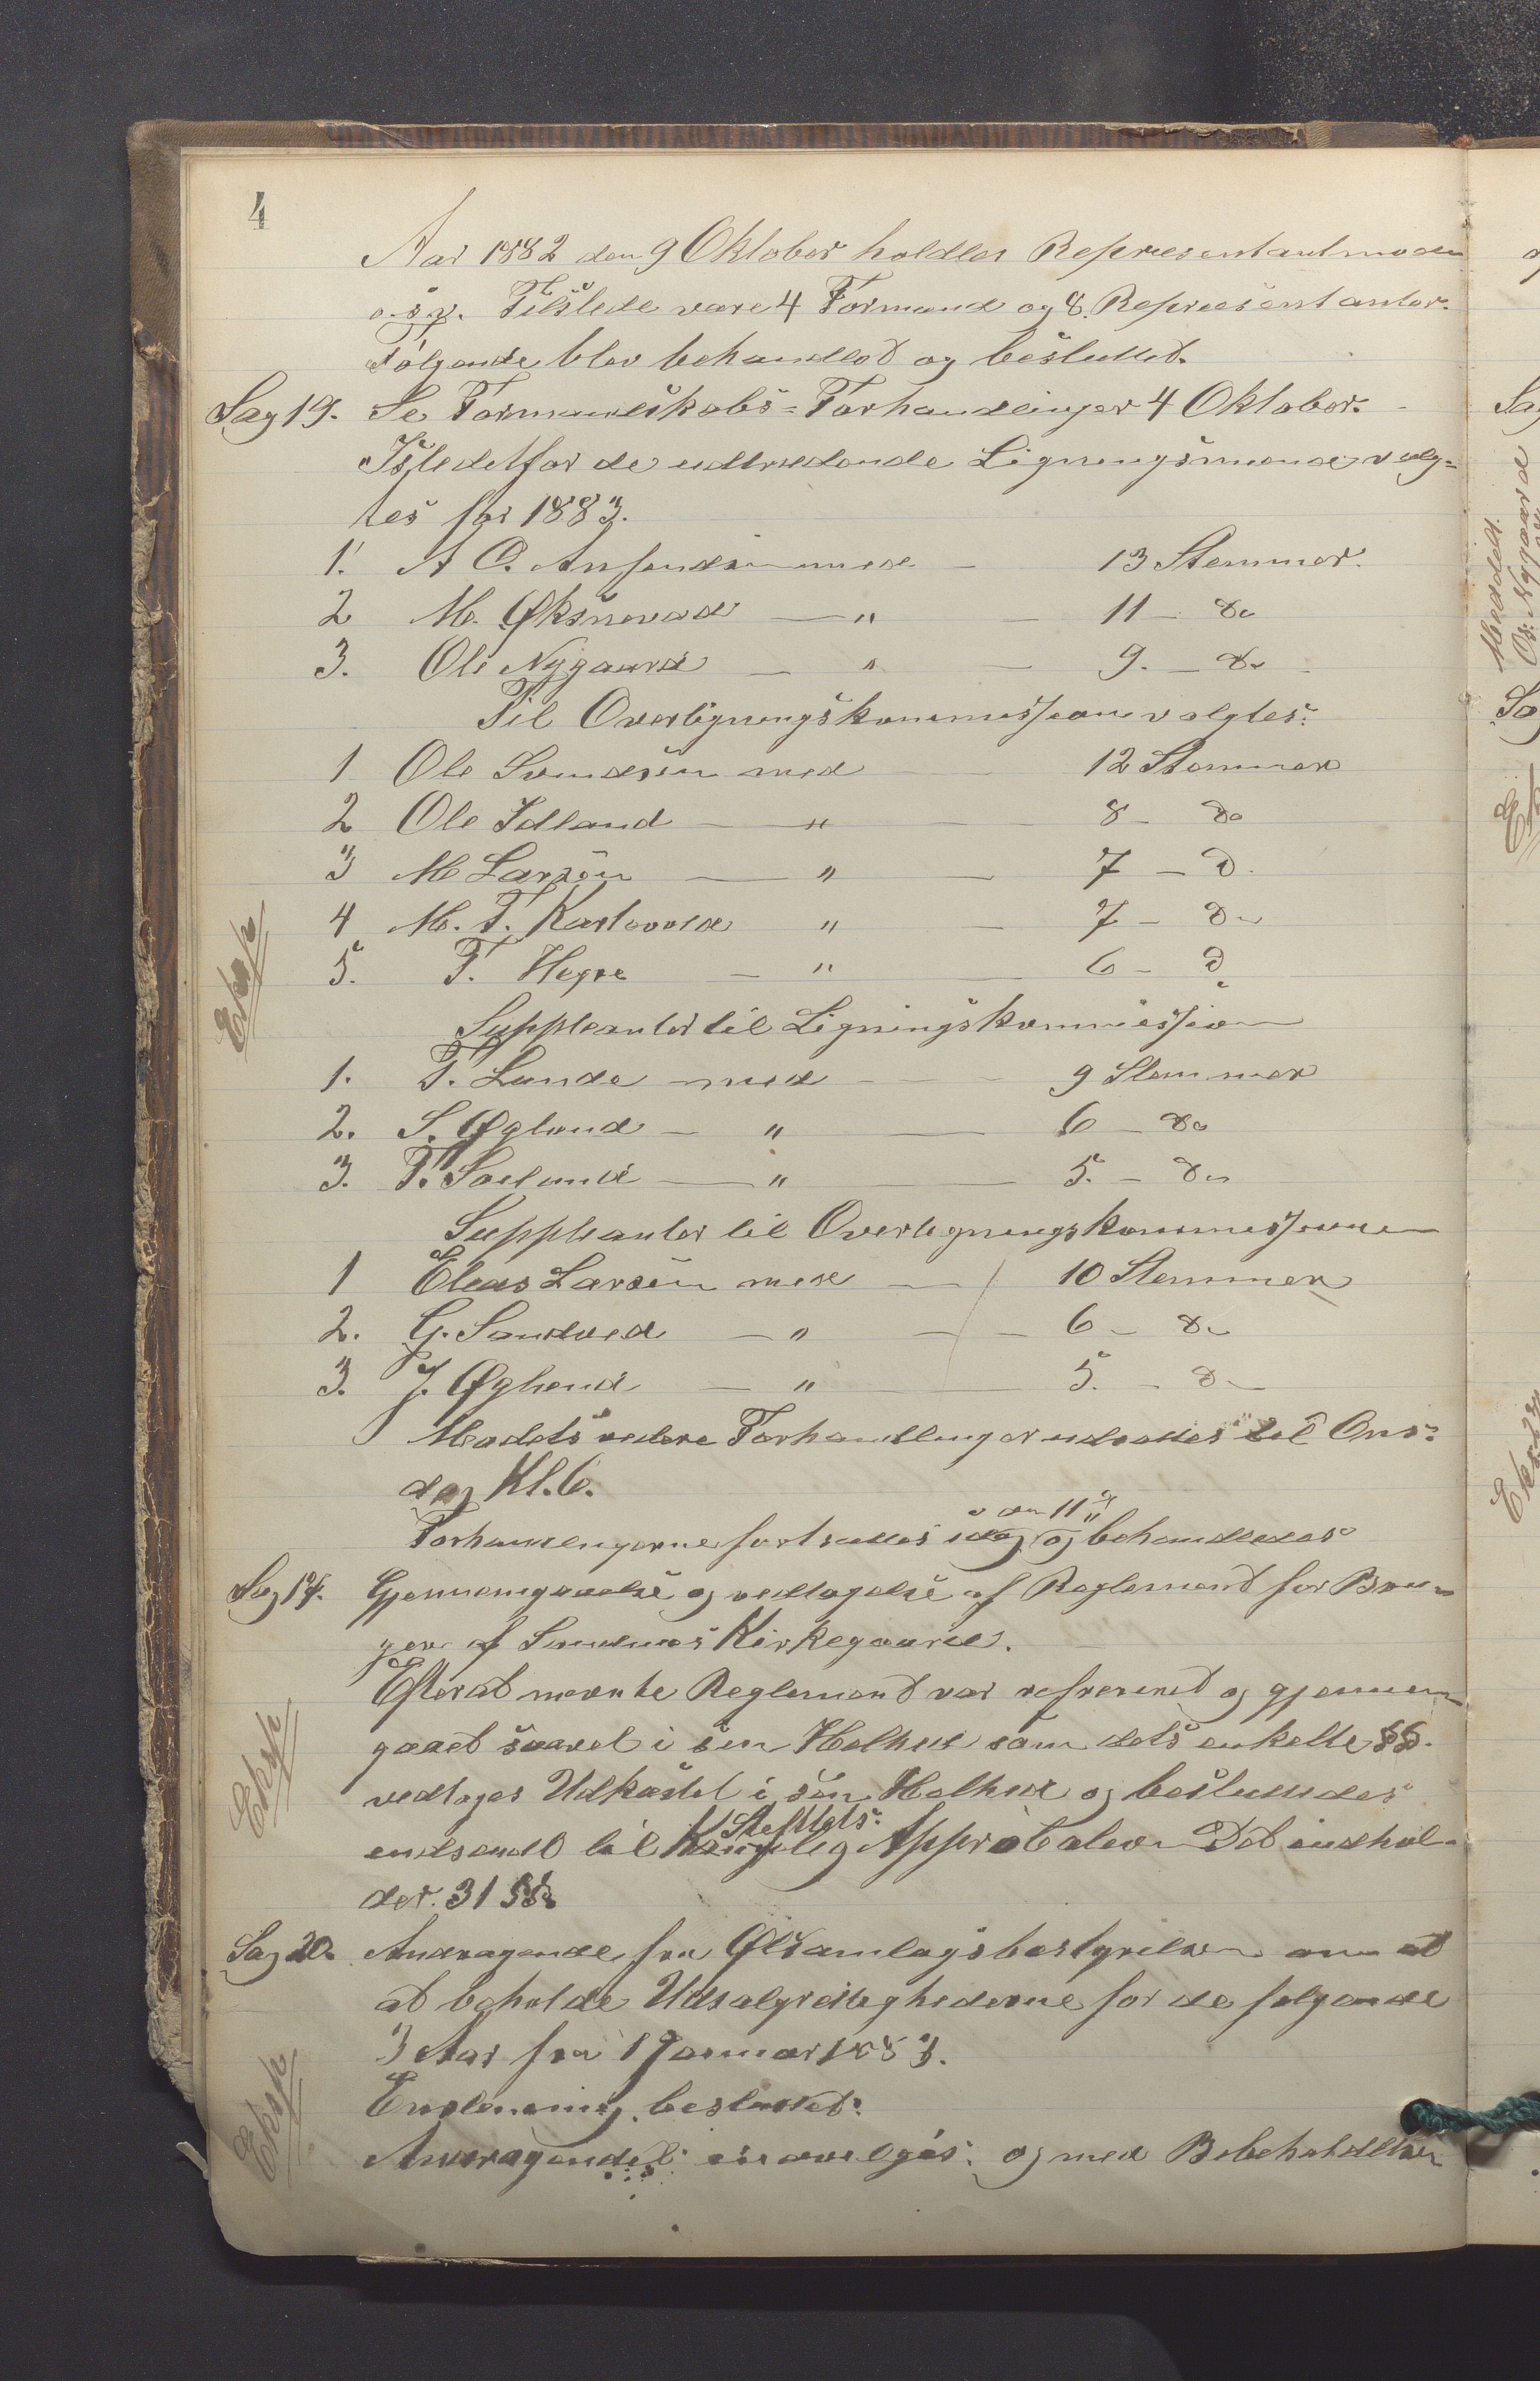 4
Aar 1882 den 9 Oktober holdtes Repræsentantmøde
o.s.v. Tilstede vare 4 Formænd og 8 Repræsentanter.
Følgende blev behandlet og besluttet.
Sag 19. Se Formandskabs-Forhandlinger 4 Oktober.
Istedetfor de udtrædende Ligningsmænd valg-
tes for 1883.
1. A O. Anfendsen med 13 Stemmer.
2 M. Øksnevad — " — 11 — do
3. Ole Nygaard — " — 9. — do
Til Overligningskommissionen valgtes:
1 Ole Svendsen med 12 Stemmer
2 Ole Idland — " — 8 — do
3 M Larsen — " — 7 — d.
4 M. T. Kartevold " — 7 — do
5. T. Hegre — " — 6 — d.
Suppleanter til Ligningskommission
1. T. Lunde med — 9 Stemmer
2. S. Øgland — " — 6 — do
3. T. Soeland — " — 5. — do
Suppleanter til Overligningskommissionen
1 Elias Larsen med — 10 Stemmer
2. G. Sandved — " — 6 — do
3. J. Øglend — " — 5. — do
Mødets videre Forhandlinger udsattes til Ons-
dag Kl. 6.
Forhandlingerne fortsattes idag den 11 og behandledes
Sag 14. Gjennemgaaelse og vedtagelse af Reglement for Bru-
gen af Sandnes Kirkegaard.
Efterat nævnte Reglement var refereret og gjennem-
gaaet saavel i sin Helhed som dets enkelte §§.
vedtoges Udkastet i sin Helhed og besluttedes
indsendt til Kongelig Stiftets Approbation. Det indehol-
der 31 §§.
Sag 20. Andragende fra Ølsamlagsbestyrelsen om at
at beholde Udsalgsrettighederne for de følgende
3 Aar fra 1 Januar 1883.
Enstemmig besluttet:
Andragendet indvilges og med Bibeholdelse
Eksp
Eksp
Eksp
Meddelt
O. Nygaard